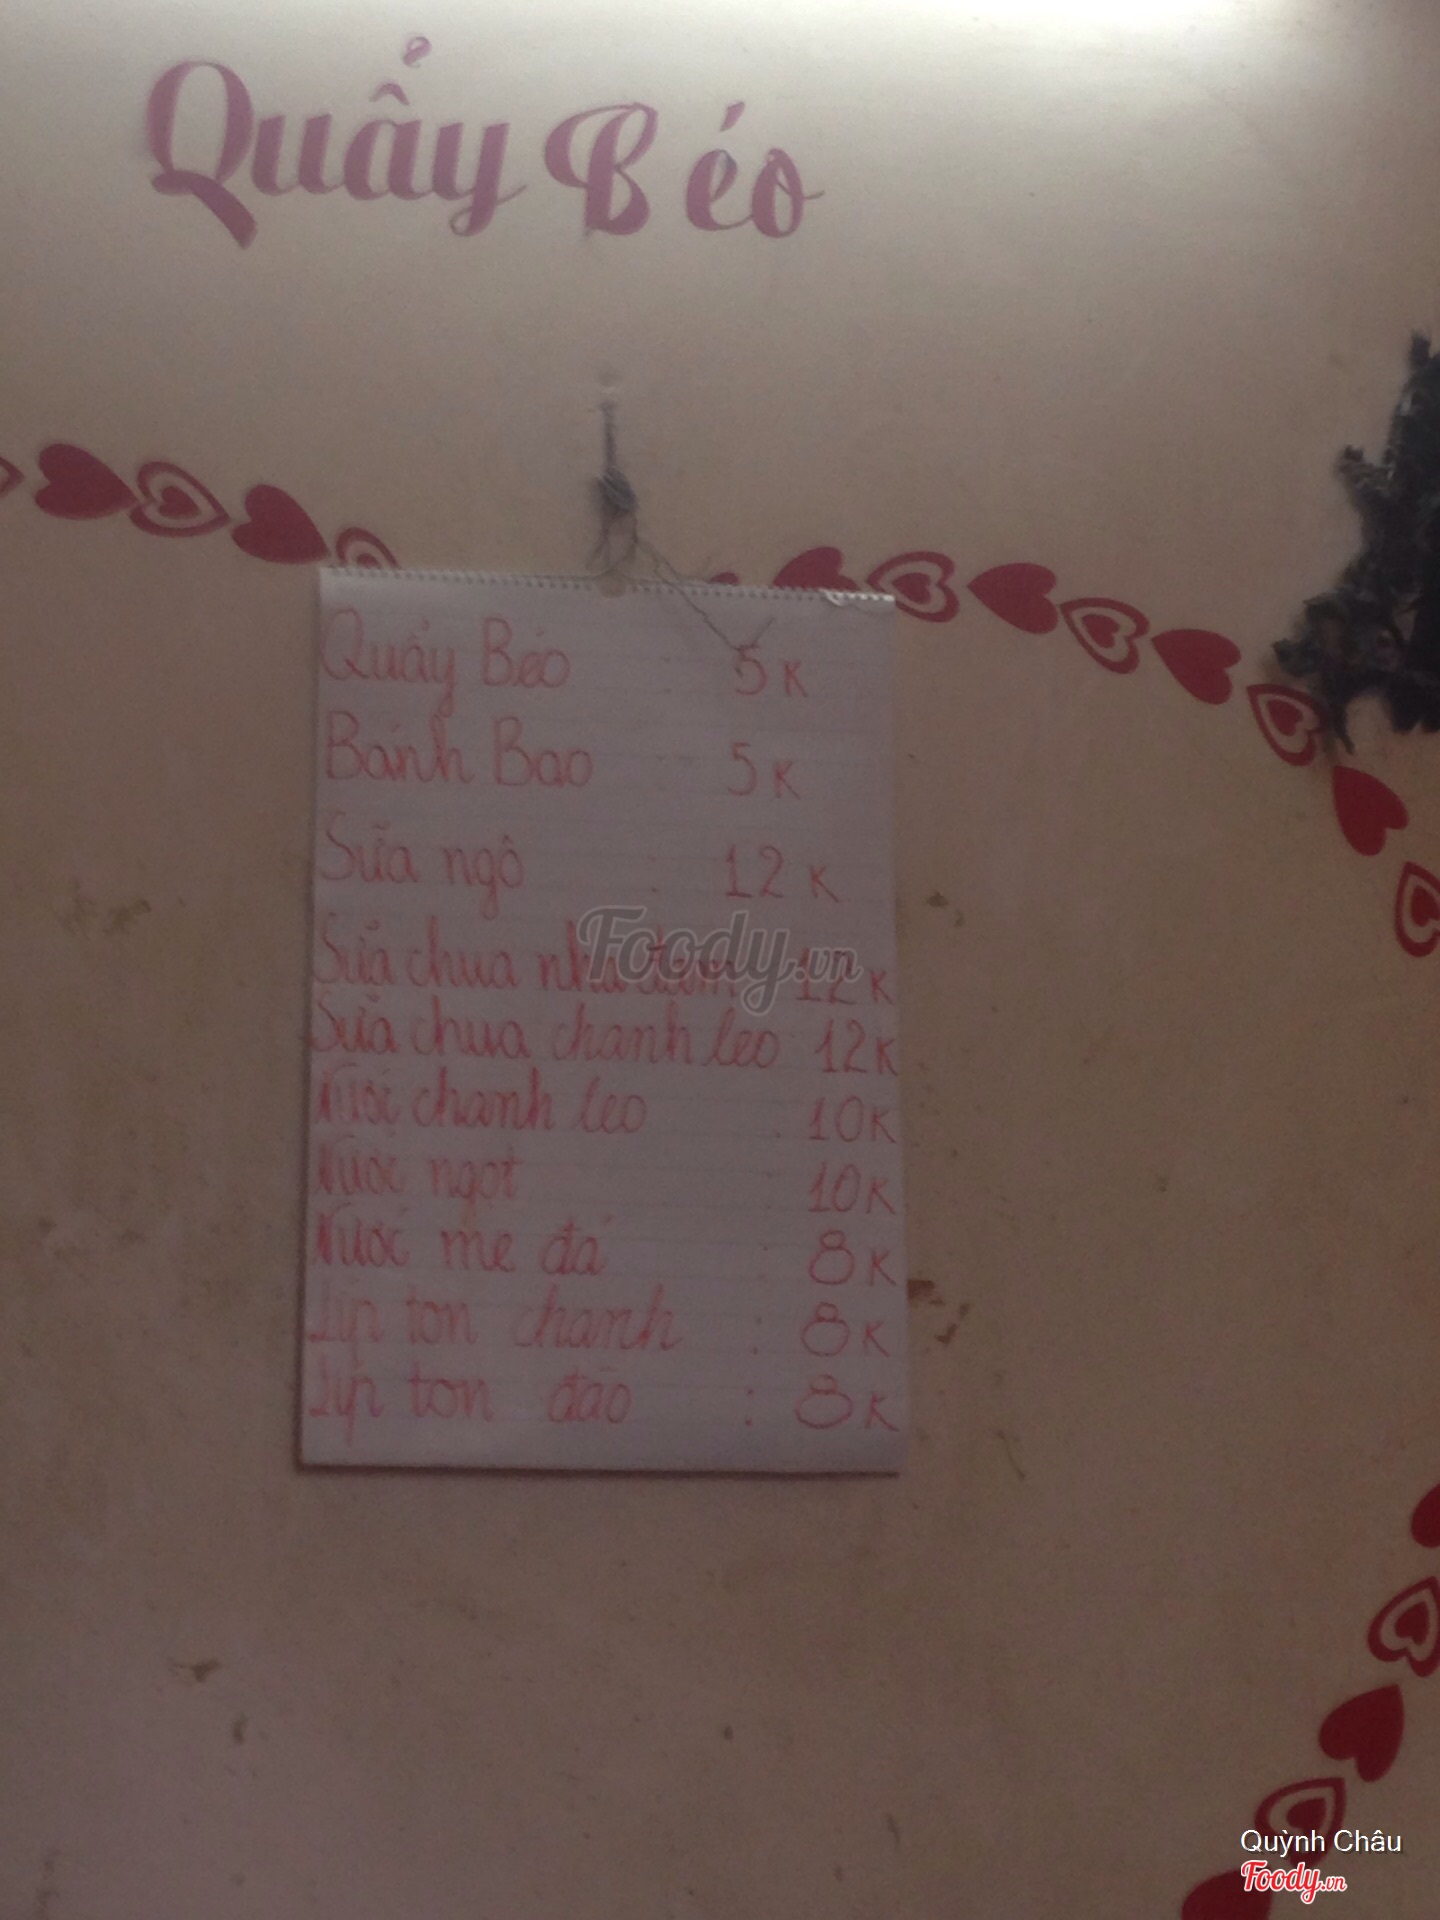 Quẩy Béo
Quẩy Béo 5K
Bánh Bao 5K
Sữa ngô : 12K
Sữa chua nha đam 12K
Sữa chua chanh leo 12K
Nước chanh leo : 10K
Nước ngọt : 10K
Nước me đá : 8K
Lip ton chanh : 8K
Lip ton đào : 8K
Foody.vn
Quỳnh Châu
Foody.vn